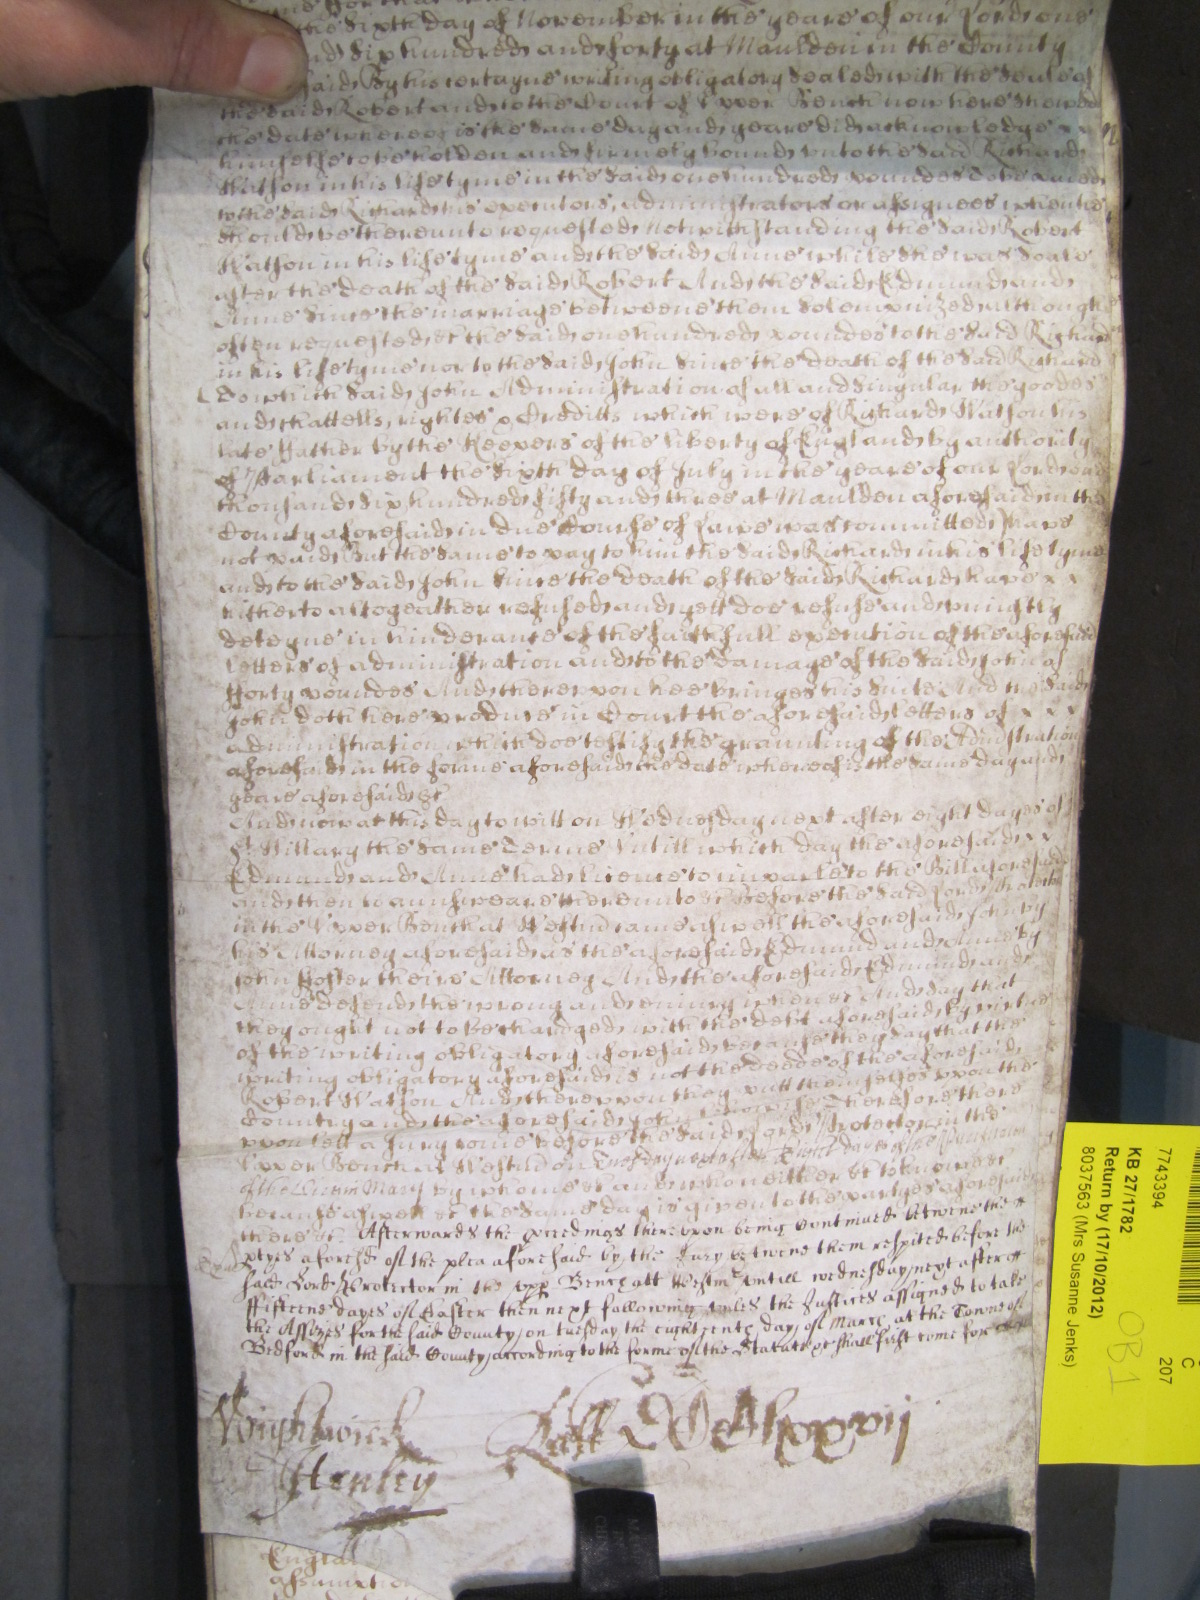 the sixth day of November in the yeare of our Lord one
and six hundred and forty at Maulden in the County
said By his certayne writing obligatory sealed with the seale of
the said Robert and to the Court of Upper Bench now here shewed
the date whereof is the same day and yeare did acknowledge
himselfe to be holden and firmely bound unto the said Richard
Watson in his life tyme in the said one hundred poundes To be paied
to the said Richard his executors, administrators or assignees when he
should be thereunto requested notwithstanding the said Robert
Watson in his life tyme and the said Anne while she was soale
after the death of the said Robert And the said Edmund and
Anne since the marriage betweene them solempnized although
often requested &c the said one hundred poundes to the said Richard
in his life tyme nor to the said John since the death of the said Richard
To which said John Administration of all and singular the goodes
and chattells, rightes & Creditts which were of Richard Watson his
late ffather by the Keepers of the liberty of England by authority
of Parliament the sixth day of July in the yeare of our Lord one
thousand six hundred fifty and three at Maulden aforesaid in the
County aforesaid in due Course of Lawe was committed have
not paid But the same to pay to him the said Richard in his life tyme
and to the said John since the death of the said Richard have
hitherto altogeather refused and yett doe refuse and uniustly
deteyne in hinderance of the faithfull execution of the aforesaid
letters of administration and to the damage of the said John of
fforty poundes And thereupon hee bringes his suite And the said
John doth here produce in Court the aforesaid letters of
administration which doe testify the graunting of the Administration
aforesaid in the forme aforesaid the date whereof is the same day and
yeare aforesaid &c
And now at this day to witt on Wednesday next after eight dayes of
St Hillary the same Terme Untill which day the aforesaid
Edmund and Anne had licence to imparle to the Bill aforesaid
and then to answeare thereunto &c Before the said Lord Protector
in the Upper Bench at Westm came aswell the aforesaid John by
his Attorney aforesaid as the aforesaid Edmund and Anne by
John Hoster theire Attorney And the aforesaid Edmund and
Anne defend the wrong and iniury when &c And say that
they ought not to be charged with the debt aforesaid by virtue
of the writing obligatory aforesaid because they say that the
writing obligatory aforesaid is not the deede of the aforesaid
Robert Watson And thereupon they putt themselves upon the
Country and the aforesaid John likewise Therefore there
upon lett a Jury come before the said Lord Protector in the
Upper Bench at Westm on Tuesday next after Eight dayes of the Purification
of the Virgin Mary by whome &c and who neither &c to knowe &c
because aswell &c the same day is given to the partyes aforesaid
there &c Afterwards the proceedings thereupon being Continued betwene the
ptyes aforesd of the plea aforesaid by the Jury betwene them respited before the
said Lord Protector in the upp Bench att Westm untill wednesday next after
ffifteene dayes of Easter then next following unles the Justices assigned to take
the Assizes for the said County on tuesday the eighteenth day of March at the Towne of
Bedford in the said County according to the forme of the Statute &c shall first come for
Wightwick
Henley
Engla
assumption
7743394
KB 27/1782
Return by (17/10/2012)
8037563 (Mrs Susanne Jenks)
C
207
OB1